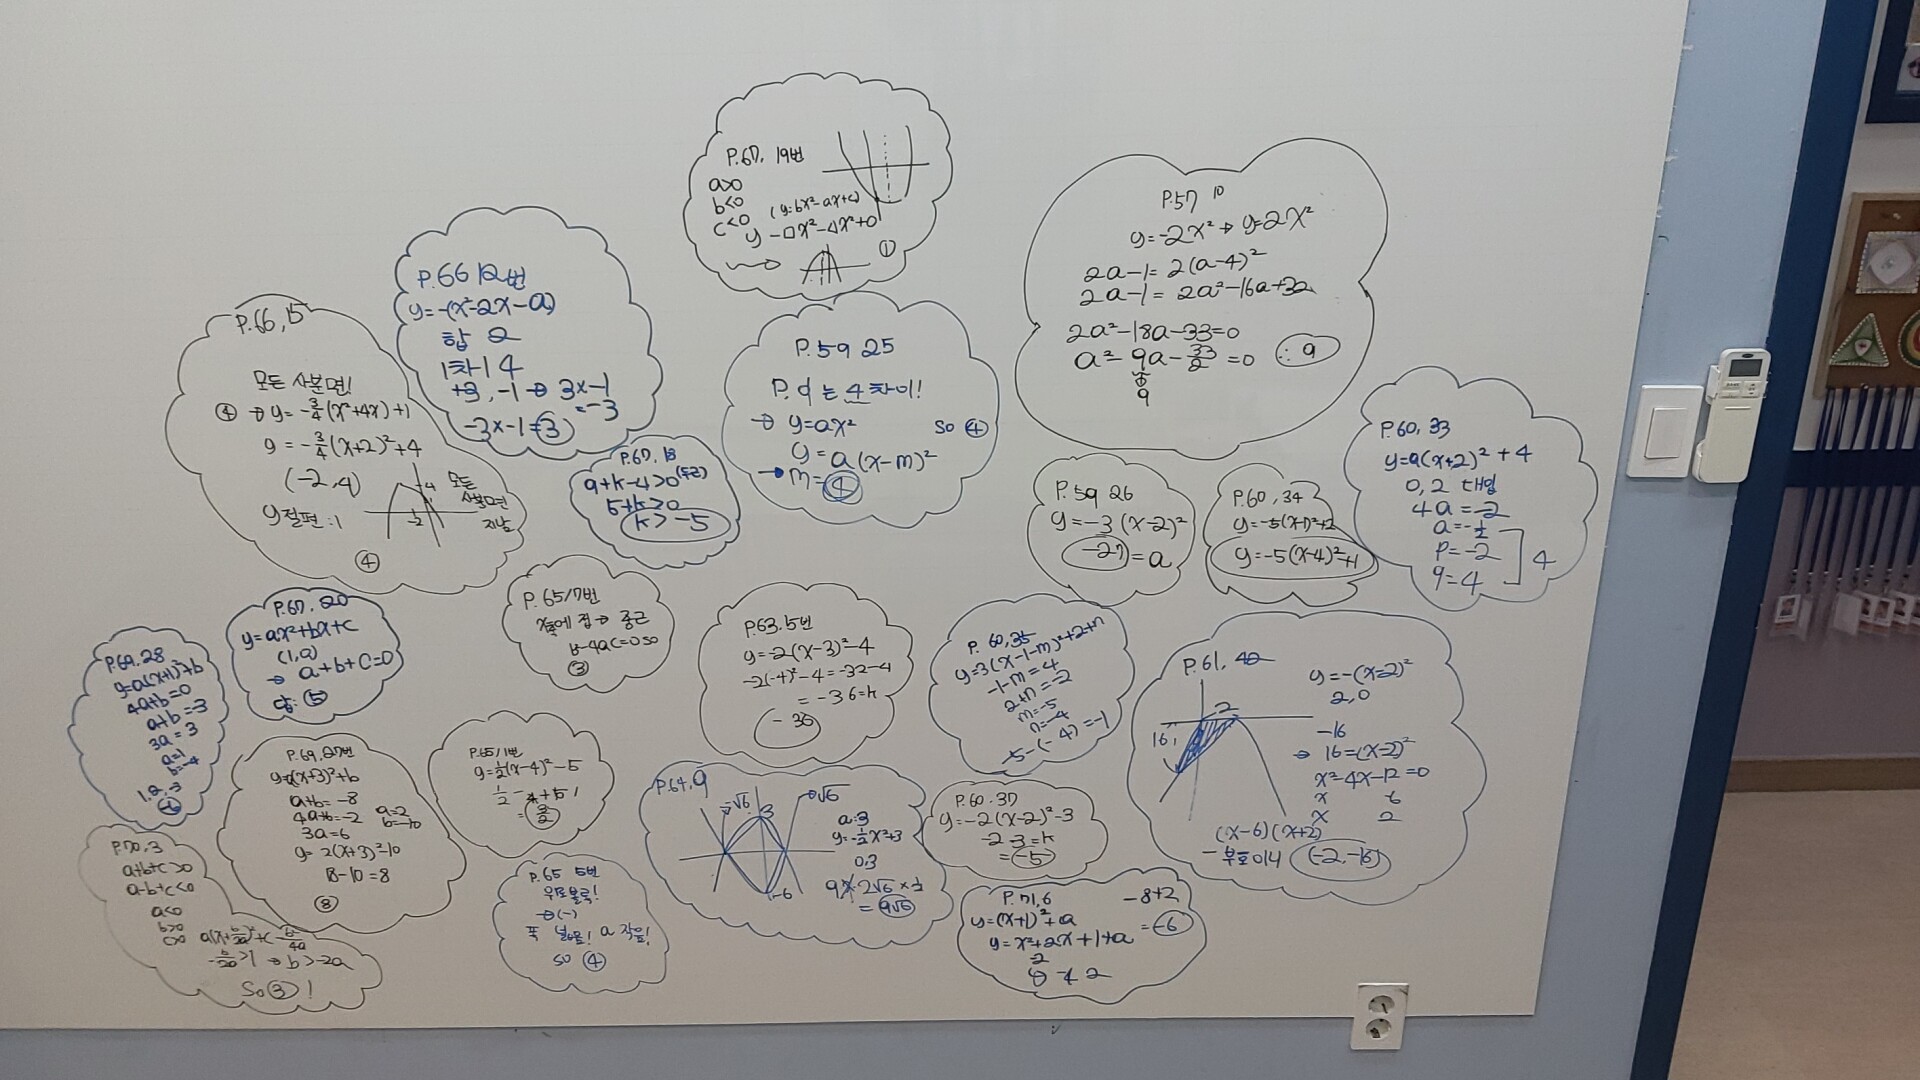 P.67. 19번
a>0
b<0
c<0 (y=bx²-ax+c)
y -□x²-△x²+0
①
P.57 10
y=-2x² → y=2x²
2a-1= 2(a-4)²
2a-1= 2a²-16a+32
2a²-18a-33=0
a²-9a-33/2=0
∴ 9
9
P.66 12번
y=-(x²-2x-a)
합 2
1차 4
+3, -1 → 3x-1
=-3
-3x-1=3
P.66, 15
모든 사분면!
④ → y=-3/4(x²+4x)+1
y=-3/4(x+2)²+4
(-2,4)
y절편:1
4
-2
모든
사분면
지남
④
P.59 25
P, q 는 4차이!
→ y=ax² so ④
y=a(x-m)²
→ m=④
P.67, 18
9+k-4>0
5+k>0
k>-5
P.59 26
y=-3(x-2)²
-27=a
P.60, 34
y=-5(x+1)²+2
y=-5(x-4)²+1
P.60, 33
y=a(x+2)²+4
0,2 대입
4a=-2
a=-1/2
P=-2
q=4
4
P.67, 20
y=ax²+bx+c
(1,0)
→ a+b+c=0
답: ⑤
P.65/7번
x축에 접 → 중근
b-4ac=0 so
③
P.63.5번
y=-2(x-3)²-4
-2(-4)²-4=-32-4
=-36=k
-36
P. 60,35
y=3(x-1-m)²+2+n
-1-m=4
2+n=-2
m=-5
n=-4
-5-(-4)=-1
P.61, 42
y=-(x-2)²
2,0
2
16
-16
→ 16=(x-2)²
x²-4x-12=0
x -6
x 2
(x-6)(x+2)
- 부호이니 (-2,-16)
P.69.28
y=a(x+1)²+b
4a+b=0
a+b=-3
3a=3
a=1
b=-4
1,2,3
④
P.69,27번
y=a(x+3)²+b
a+b=-8
4a+b=-2 a=2
3a=6 b=-10
y=2(x+3)²-10
18-10=8
⑧
P.65/1번
y=1/2(x-4)²-5
P.64,9
-√6 3 √6
-6
a:3
y=-1/2x²+3
0,3
9×2√6×1/2
=9√6
P.60.37
y=-2(x-2)²-3
-2-3=k
=-5
P.70,3
a+b+c>0
a-b+c<0
a<0
b>0
c>0 a(x+b/2a)²+c-b²/4a
-b/2a>1 → b>-2a
So ③ !
P.65 5번
위로볼록!
→(-)
폭 넓음! a 작음!
so ④
P.71,6 -8+2
y=(x+1)²+a =-6
y=x²+2x+1+a
2